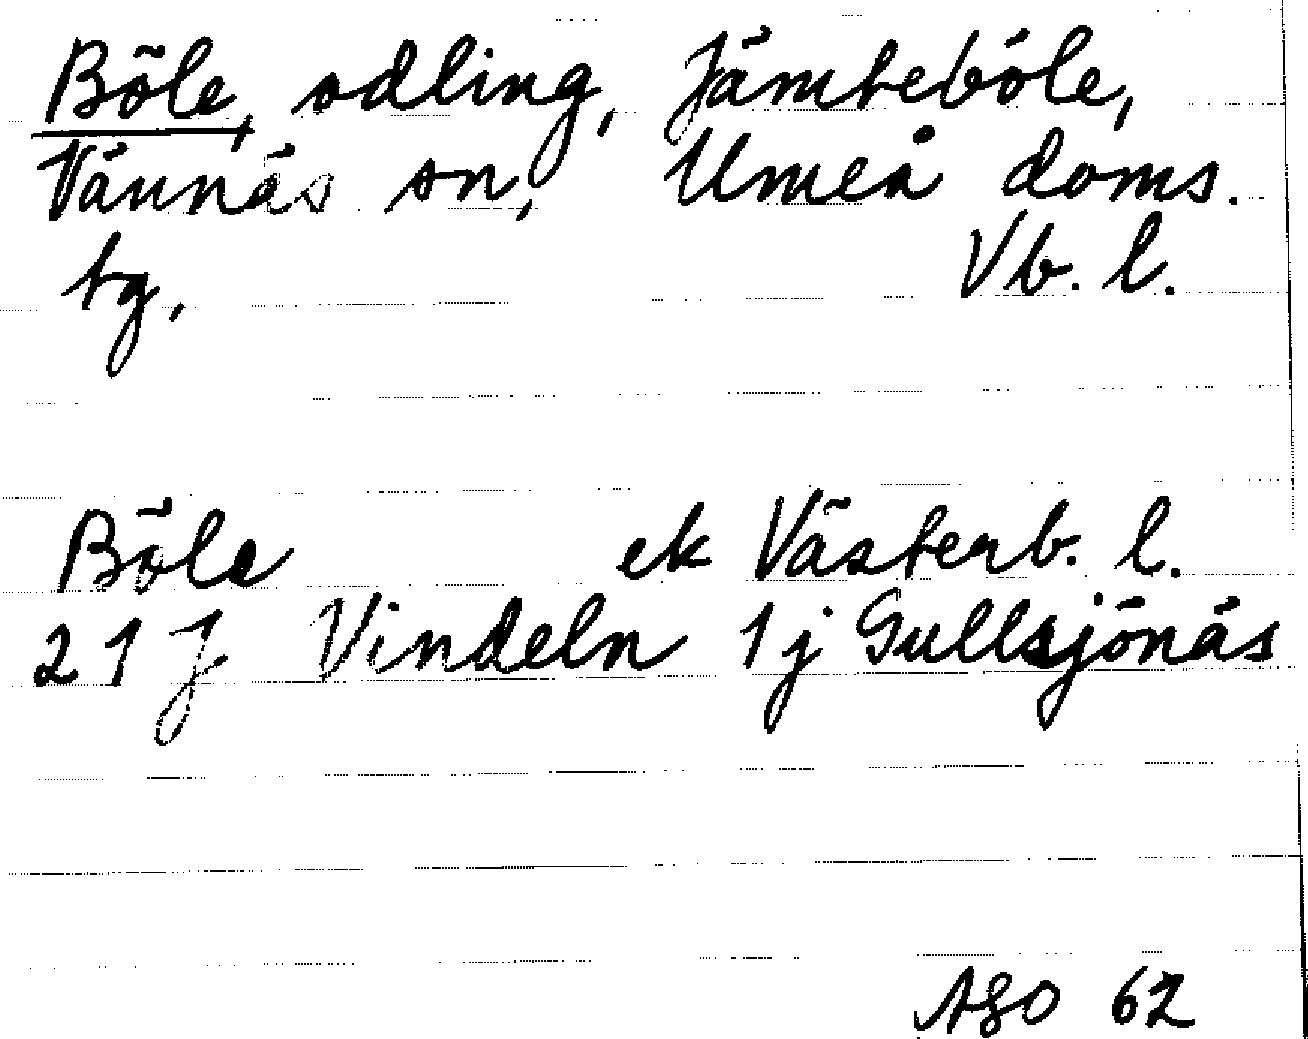 Böle, odling, Jämteböle,
Vännäs sn, Umeå doms.
tg. Vb. l.
Böle ek Västerb. l.
21 J Vindeln 1j Gullsjönäs
ASO 62